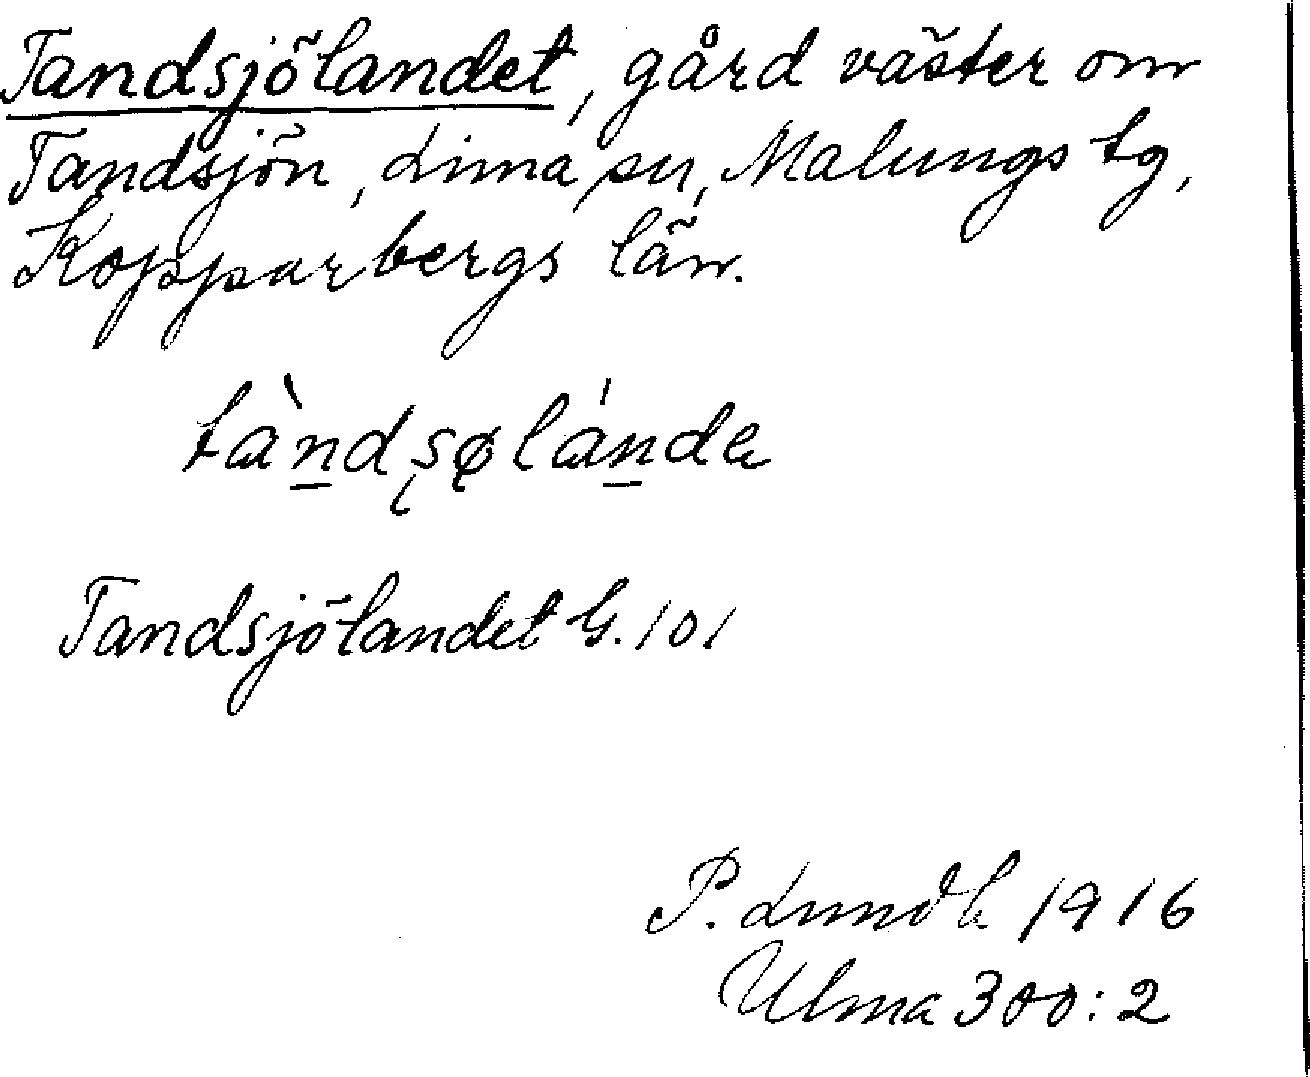 Tandsjölandet, gård väster om
Tandsjön, Lima sn, Malungs tg,
Kopparbergs län.
tàndsølánda
Tandsjölandet G. 101
P. Lundh 1916
Ulma 300:2